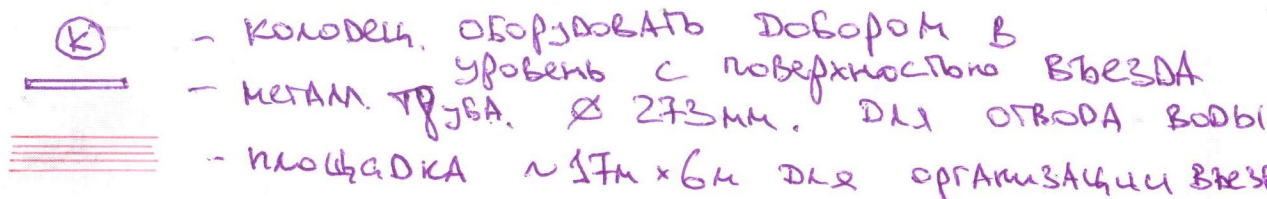 К - колодец. оборудовать добором в
уровень с поверхностью въезда
- метал. труба. ⌀ 273мм. для отвода воды
- площадка ~17м × 6м для организации